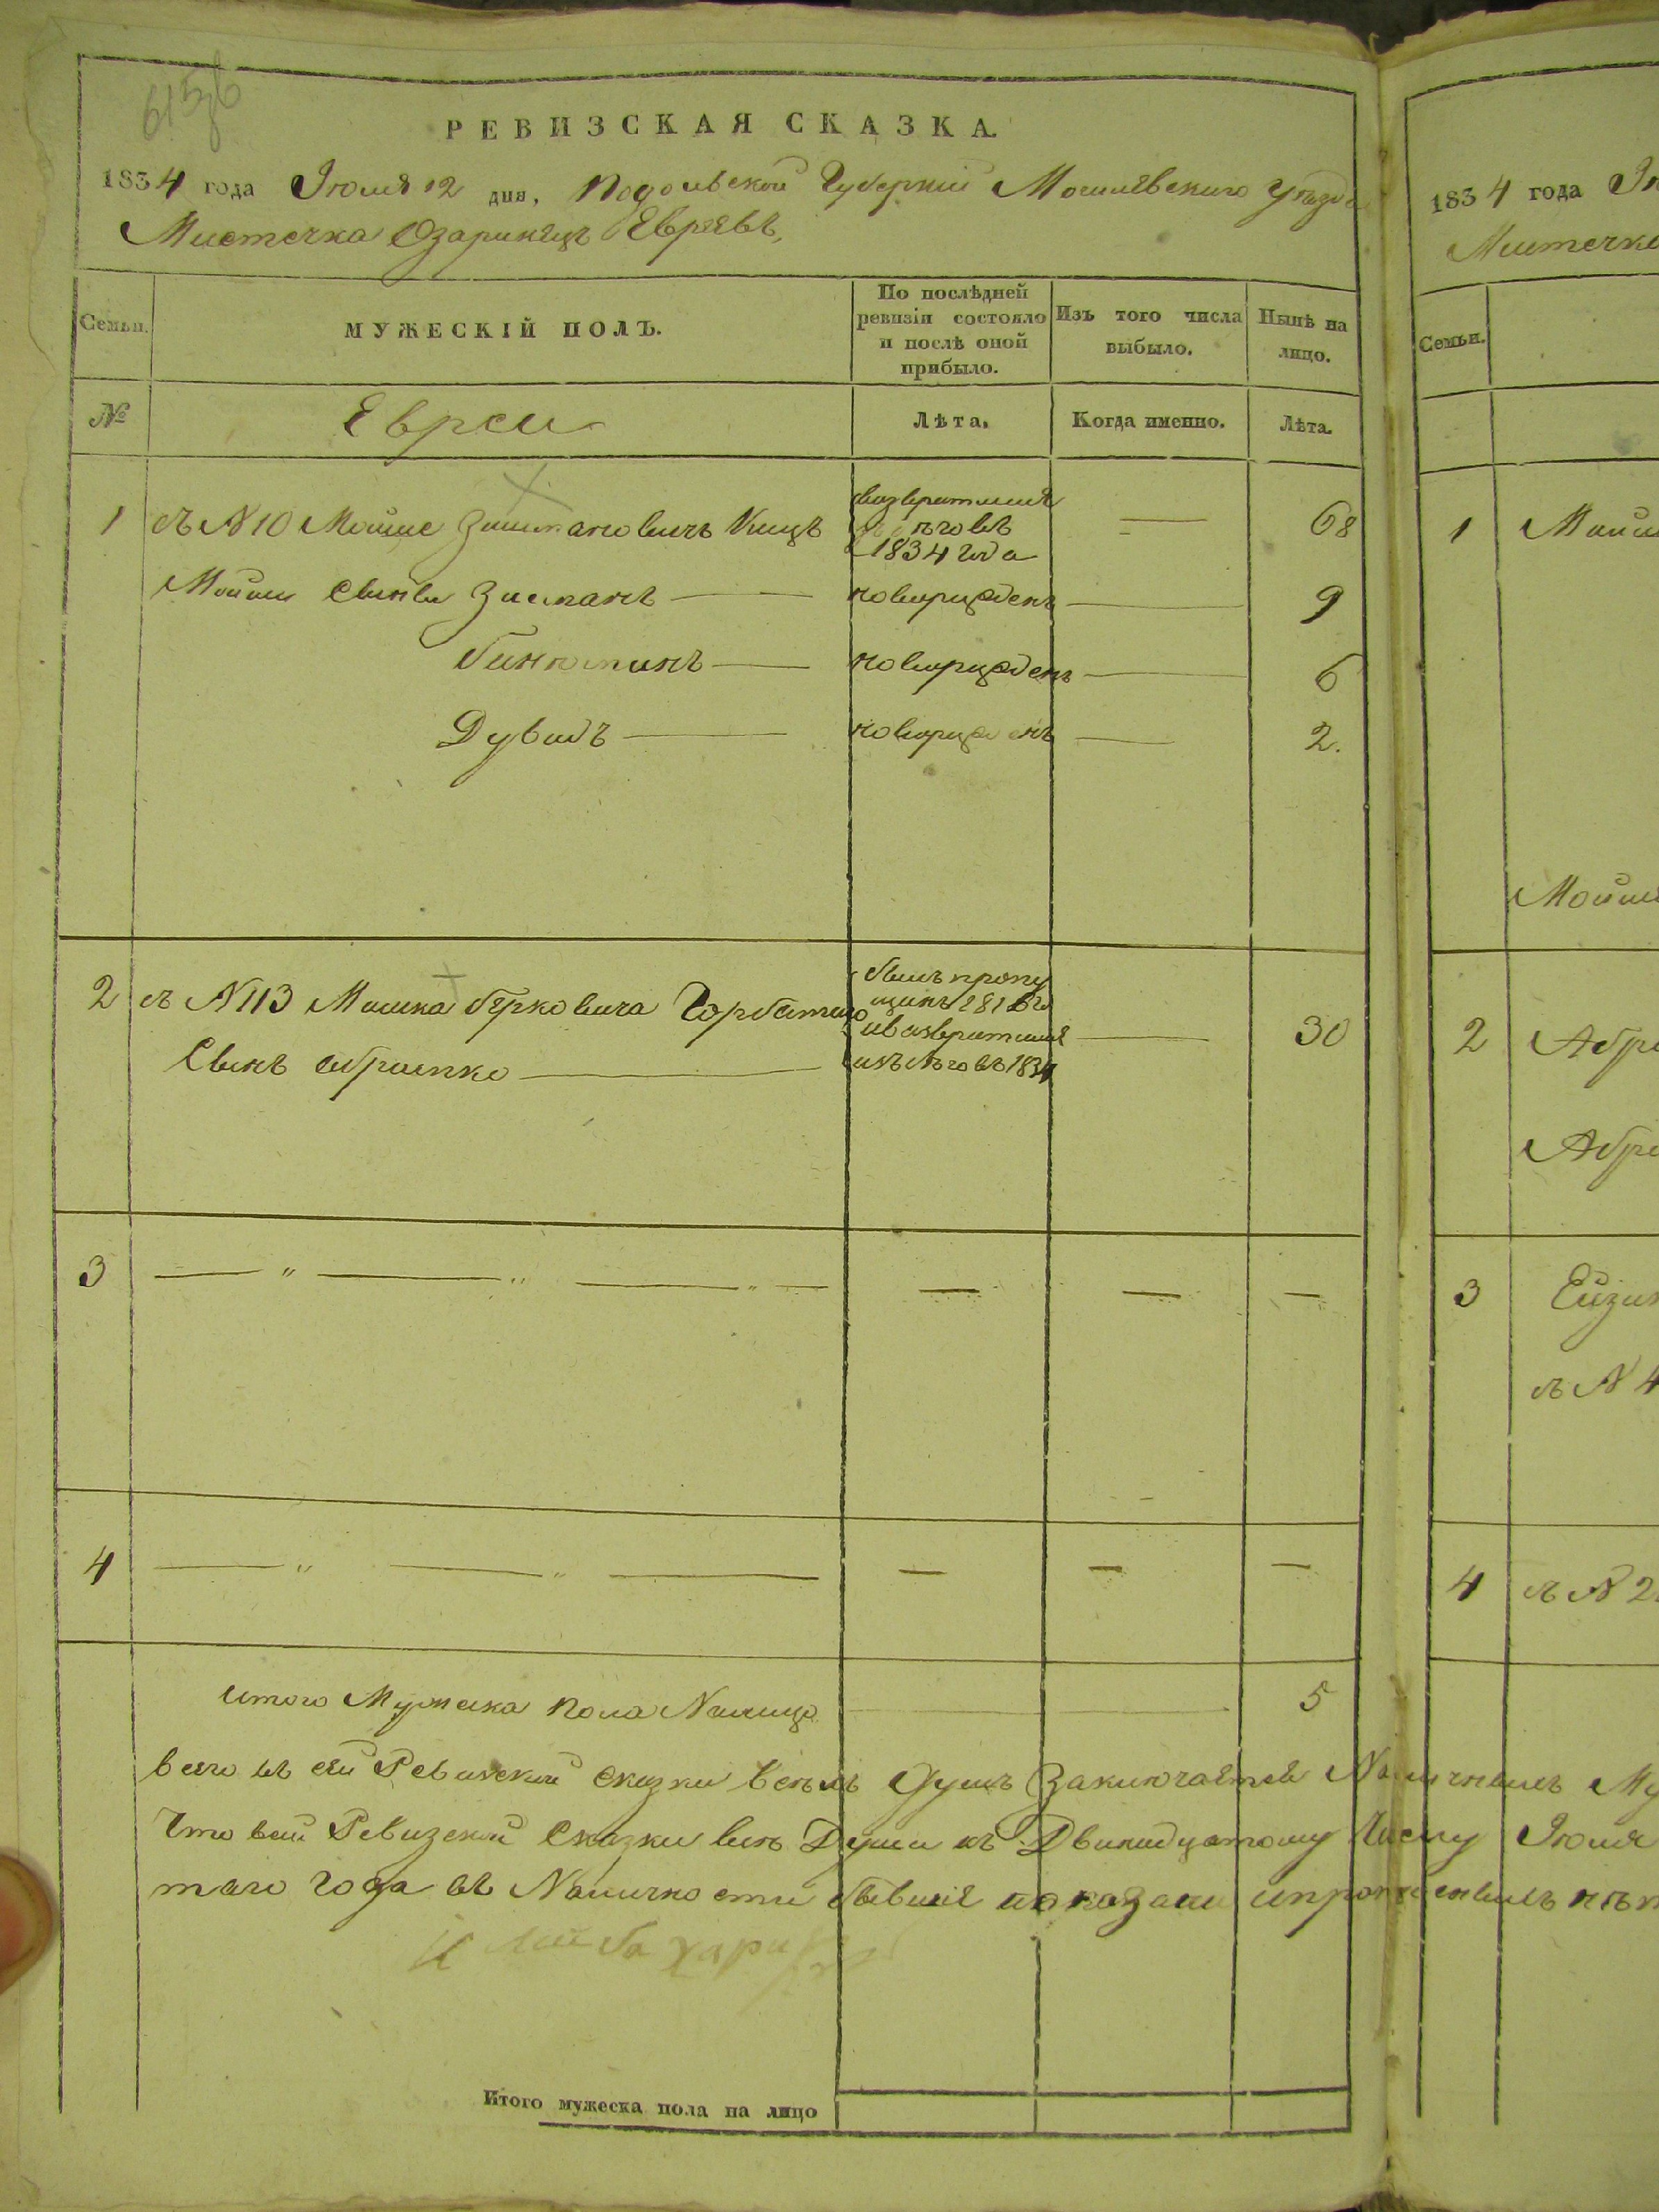 6156
РЕВИЗСКАЯ СКАЗКА.
1834 года Июля 12 дня, Подольской Губернии Могилевского уезда
Мистечка Озаринец Евреев,
Семьи.
МУЖЕСКІЙ ПОЛЪ.
По послѣдней ревизіи состояло и послѣ оной прибыло.
Изъ того числа выбыло.
Нынѣ на лицо.
№
Евреи
Лѣта.
Когда именно.
Лѣта.
1 съ N 10 Мошке Зисмановичъ возвратился
1834 года — 68
Мошки Сынъи Зисманъ — новорожденъ — 9
Бинюминъ — новорожденъ — 6
Дувидъ — новорожденъ — 2.
2 съ N 113 Мошка Берковича Горбатаго
Сынъ Абрамко —
былъ пропу
щенъ 1818го
и возвратился
въ 1834
— 30
3 — " — " — " — — — —
4 — " — " — — — —
итого Мужеска пола Налицо — 5
всего въ сей Ревизской сказки Душъ Заключается Наличныхъ
Что всей Ревизской Сказки все Души къ Двенадцатому Числу Июля
того года въ Наличности бывшие показани
Итого мужеска пола на лицо
1834 года
Мистечк
Семьи.
1
2
Абр
Абр
3
4
съ N 4
съ N 2